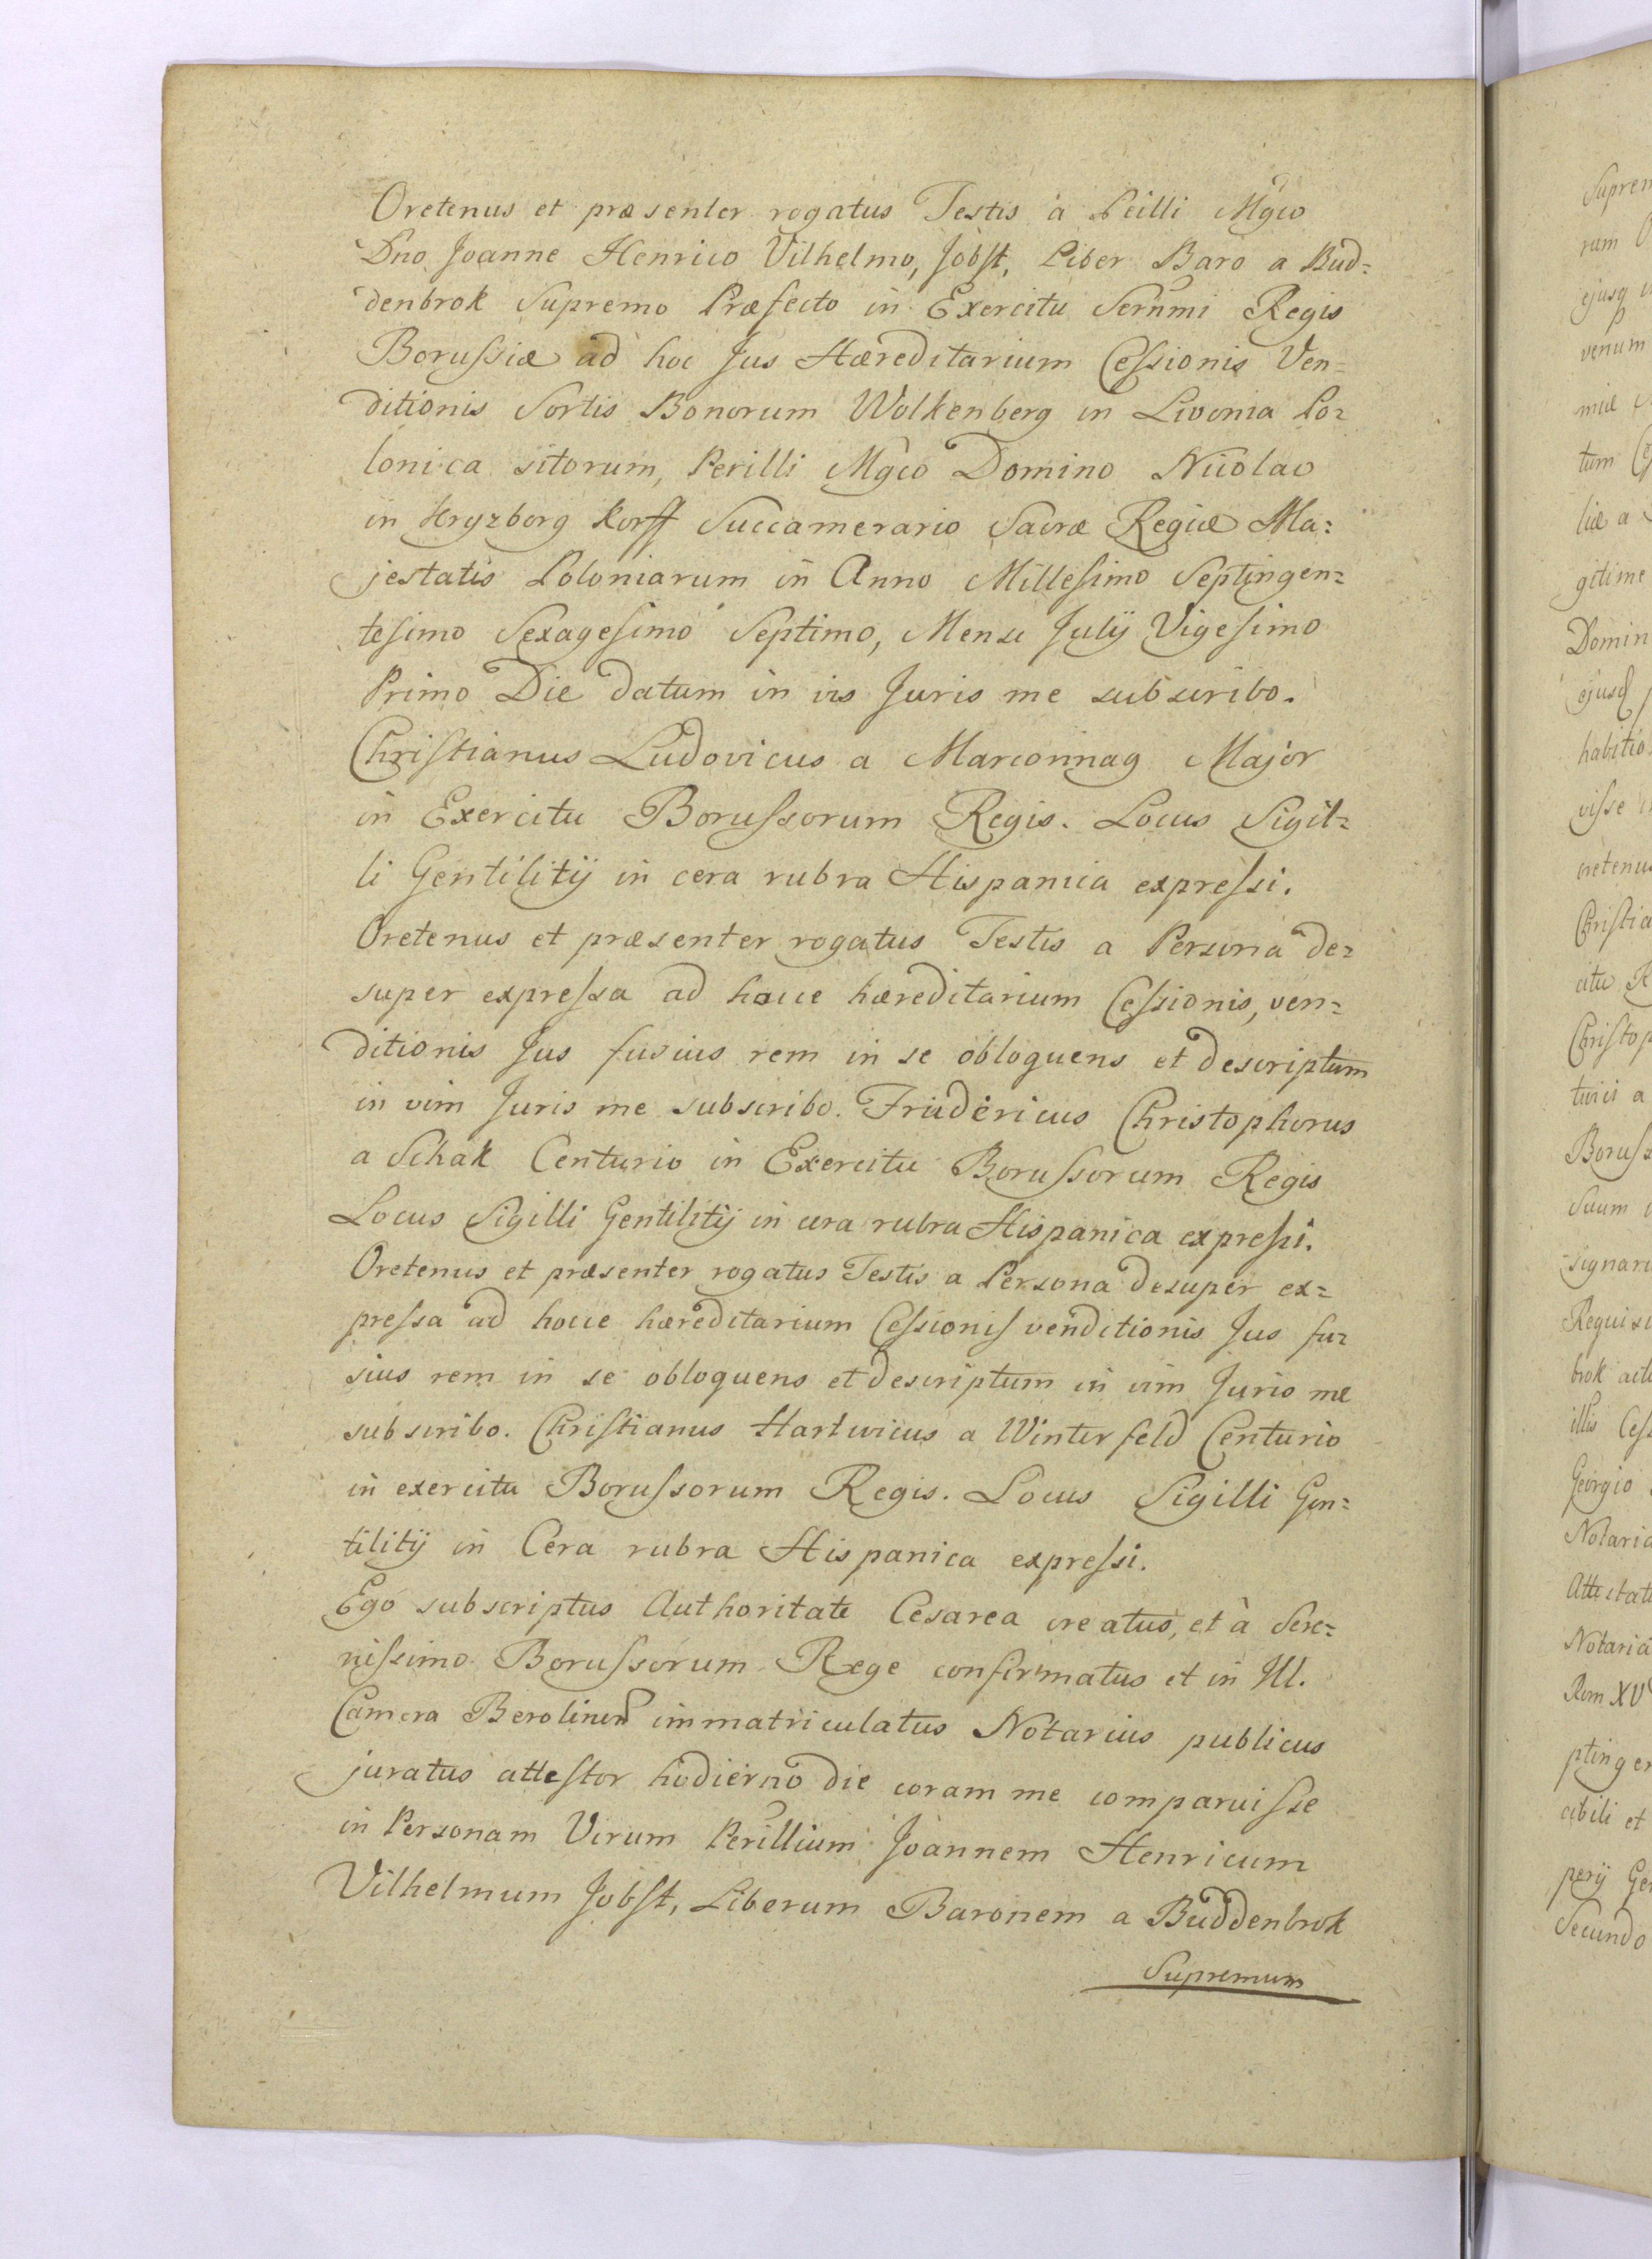 Oretenus et præsenter rogatus Testis a Peilli Mgco
Dno Joanne Henrico Vilhelmo, Jobst, Liber Baro a Bud=
denbrok Supremo Præfecto in Exercitu Sernmi Regis
Borussiæ ad hoc Jus Hæreditarium Cessionis Ven=
ditionis Sortis Bonorum Wolkenberg in Livonia Po=
lonica sitorum, Perilli Mgco Domino Nicolao
in Kryzborg Korff Succamerario Sacræ Regiæ Ma=
jestatis Poloniarum in Anno Millesimo Septingen=
tesimo Sexagesimo Septimo, Mense Julij Vigesimo
Primo Die datum in vis Juris me subscribo.
Christianus Ludovicus a Marconnay Major
in Exercitu Borussorum Regis. Locus Sigil=
li Gentilitij in cera rubra Hispanica expressi.
Oretenus et præsenter rogatus Testis a Persona de=
super expressa ad hocce hæreditarium Cessionis, ven=
ditionis Jus fusius rem in se obloquens et descriptum
in vim Juris me subscribo. Fridericus Christophorus
a Schak Centurio in Exercitu Borussorum Regis
Locus Sigilli Gentilitij in cera rubra Hispanica expressi.
Oretenus et præsenter rogatus Testis a Persona desuper ex=
pressa ad hocce hæreditarium Cessionis venditionis Jus fu=
sius rem in se obloquens et descriptum in vim Juris me
subscribo. Christianus Hartwicus a Winterfeld Centurio
in exercitu Borussorum Regis. Locus Sigilli Gen=
tilitij in Cera rubra Hispanica expressi.
Ego subscriptus Authoritate Cesarea creatus, et à Sere=
nissimo Borussorum Rege confirmatus et in Ill.
Camera Berolinen immatriculatus Notarius publicus
juratus attestor hodierno die coram me comparuisse
in Personam Virum Perillium Joannem Henricum
Vilhelmum Jobst, Liberum Baronem a Buddenbrok
Supremum